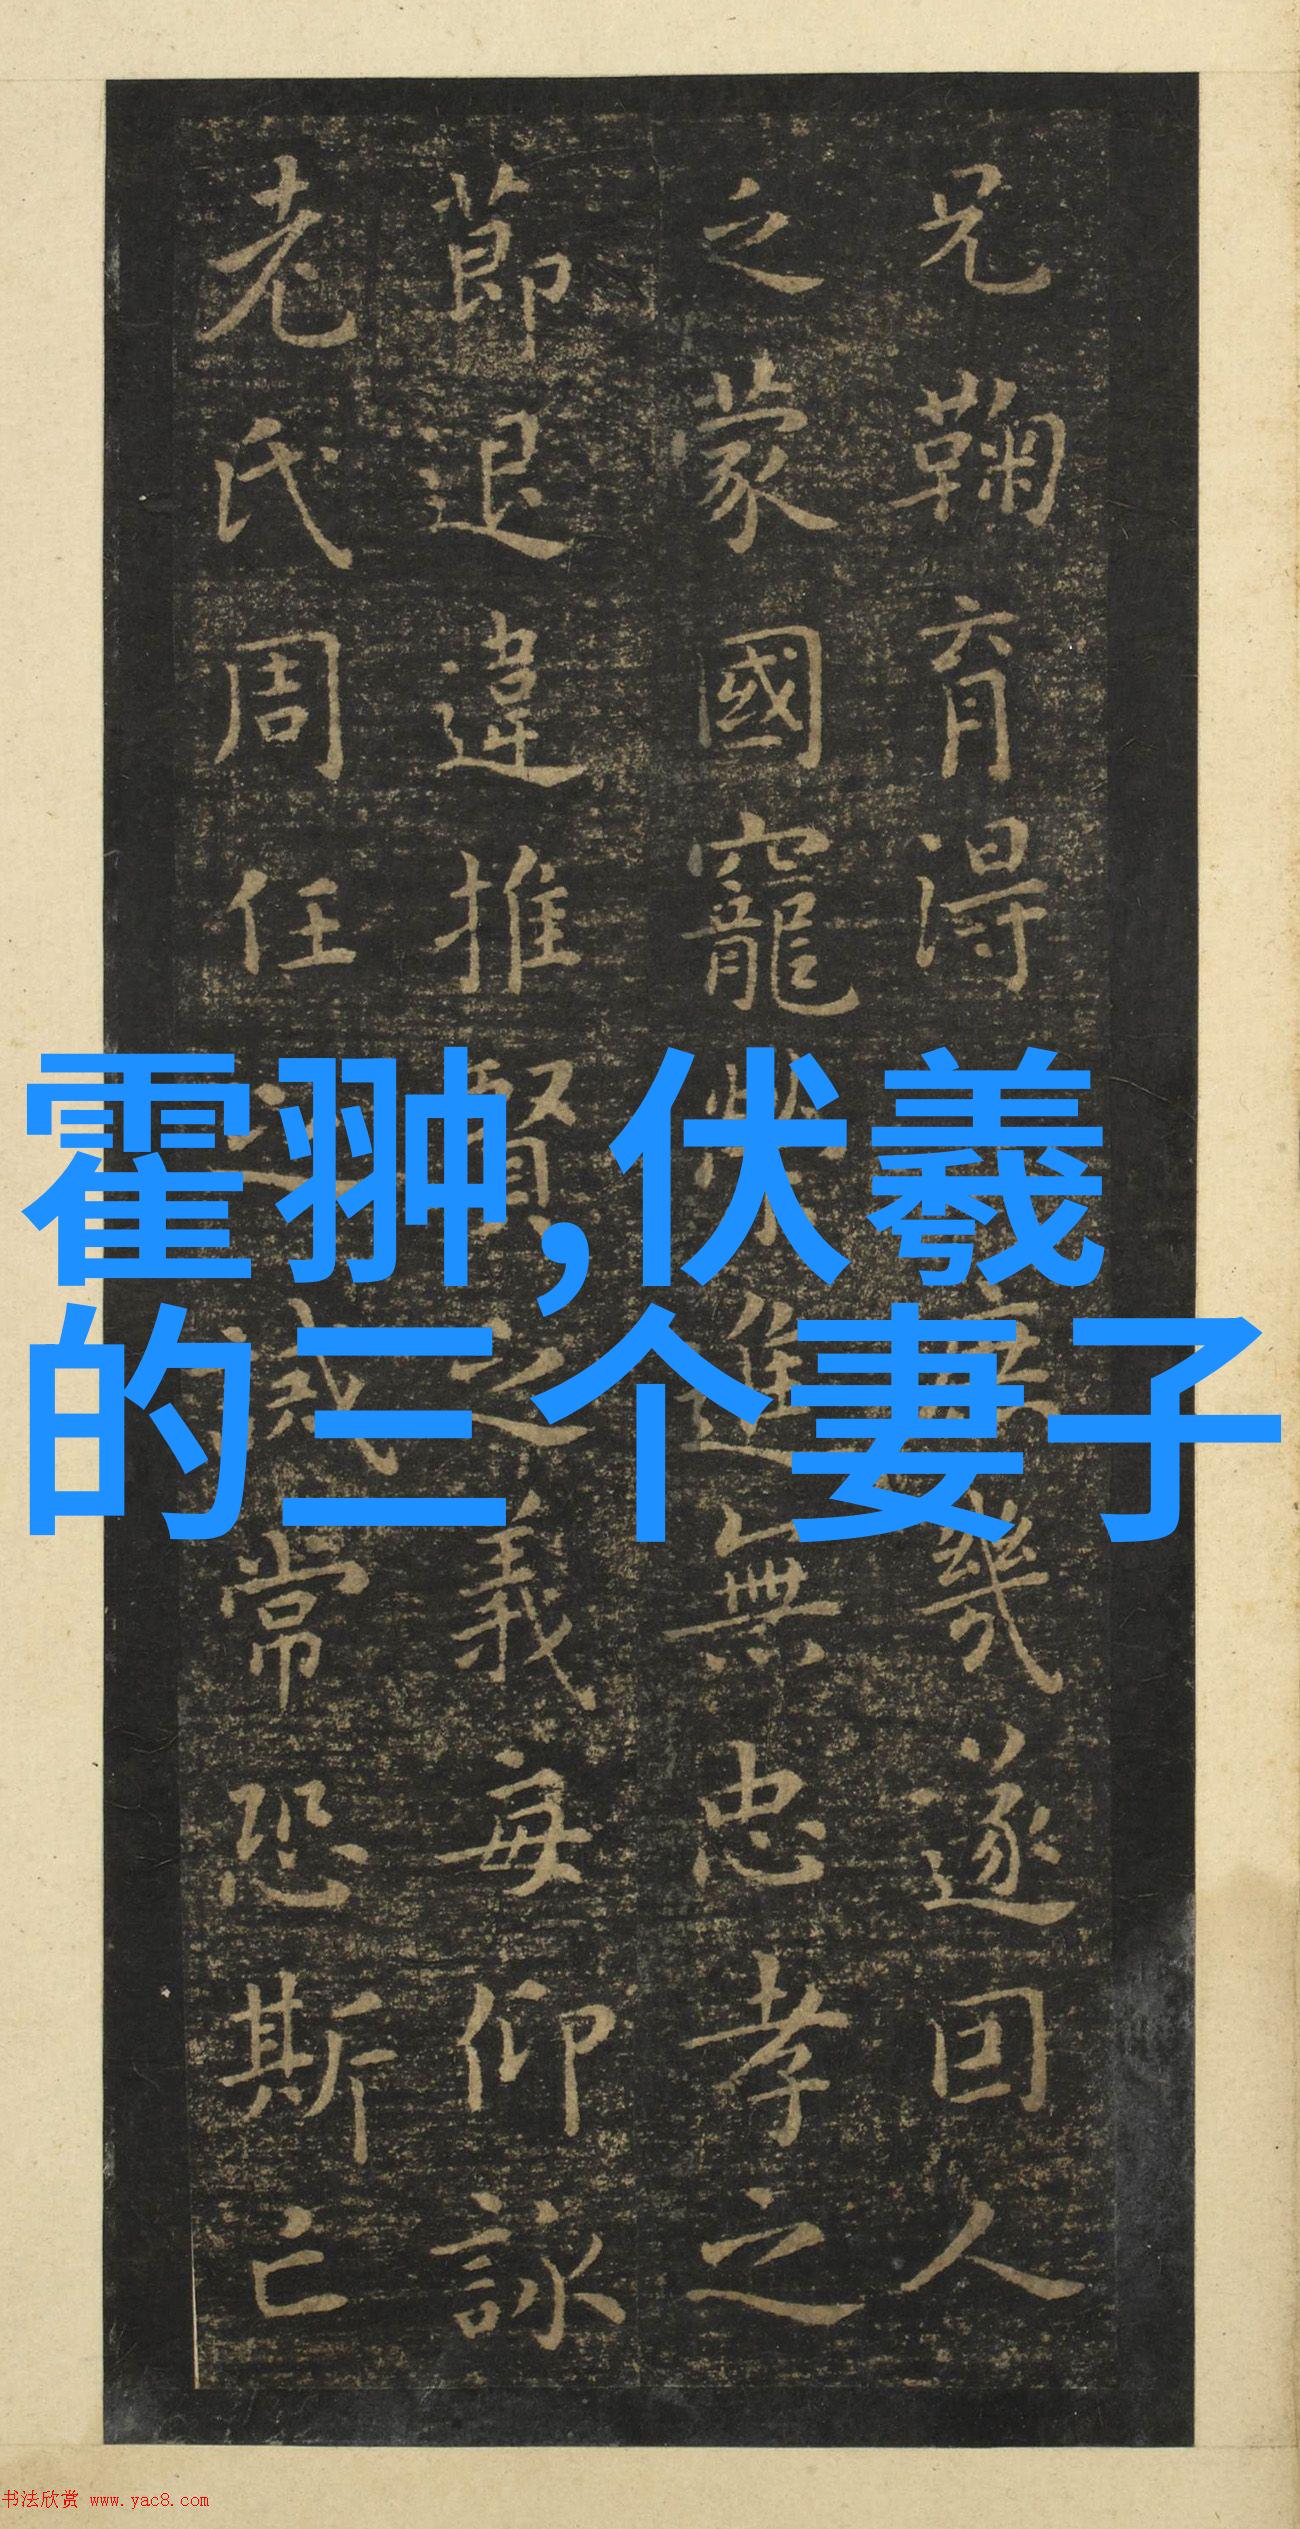 兄鞠育得無幾遂回人
之蒙國寵榮進無忠孝之
節退違推賢之義每仰詠
老氏周任之誡常恐斯亡
霍翀,伏羲
的三个妻子
书法欣赏 www.yac8.com